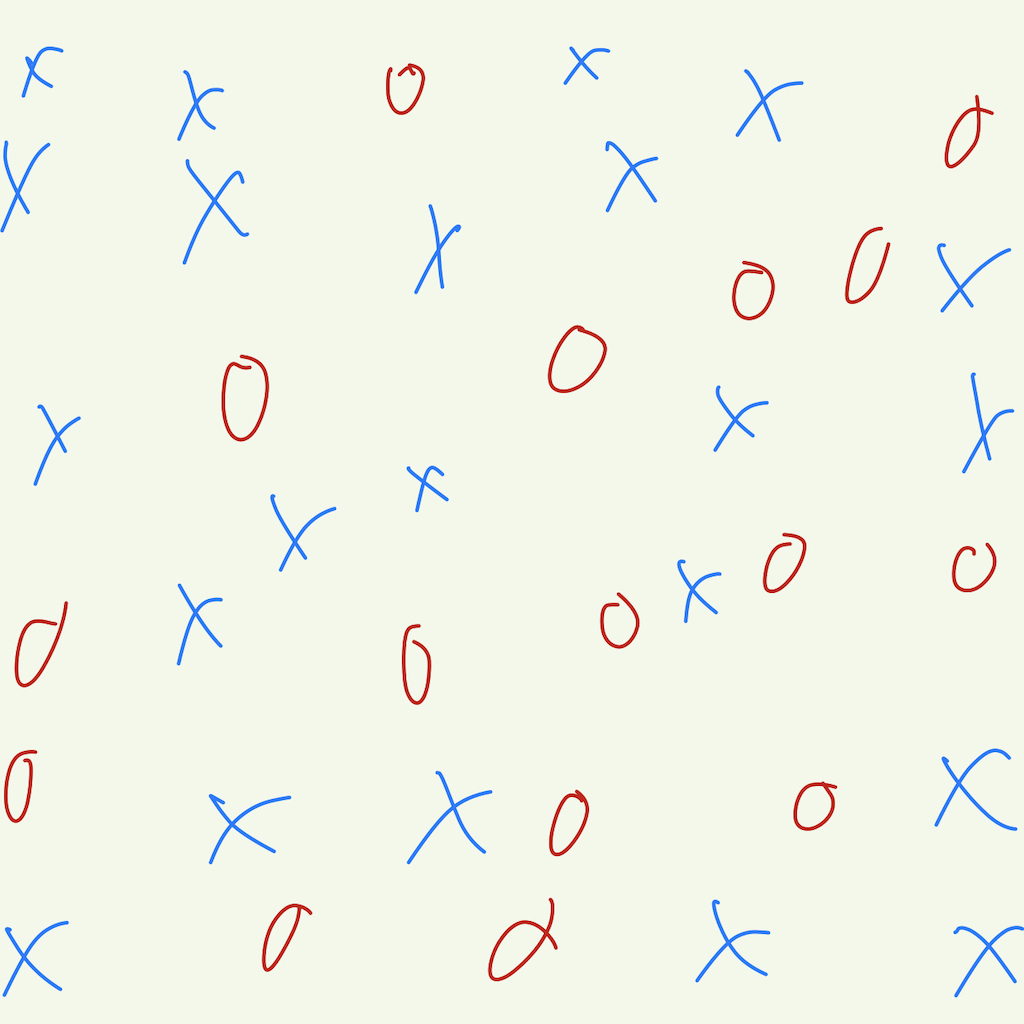 X X O X X O
X X X X
O O X
O O X X
X X X
O X O O
O X O O
O X X O O X
X O O X X